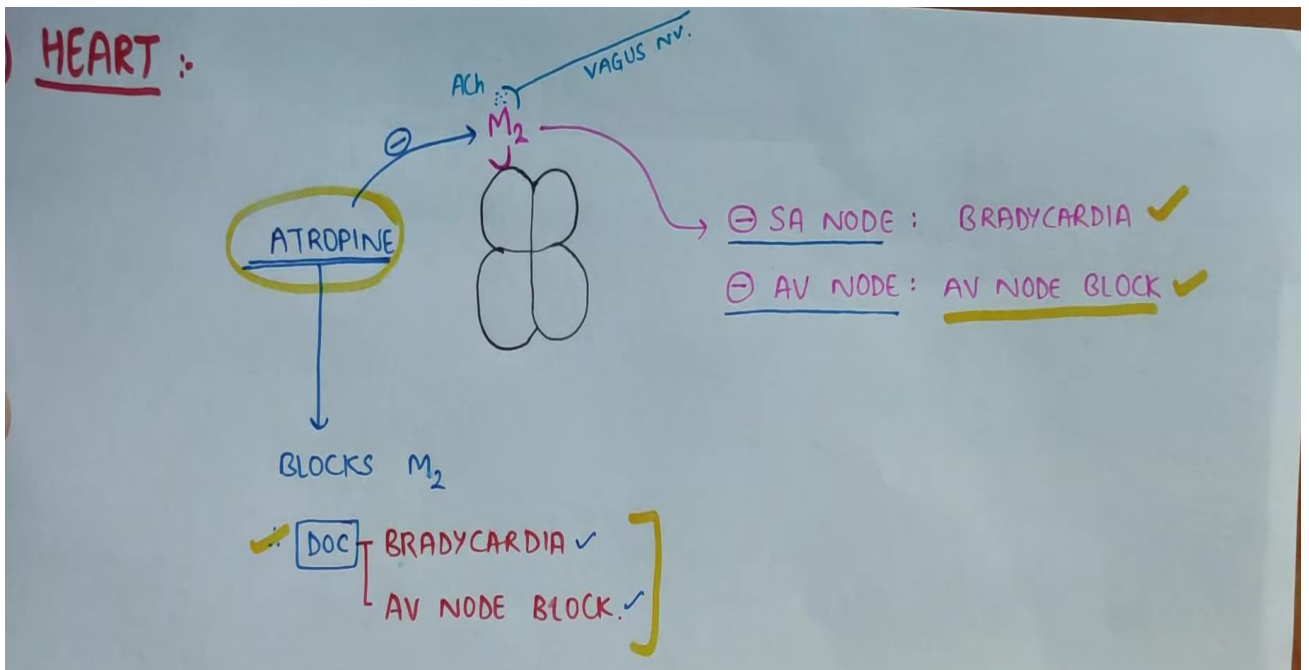 HEART :-
VAGUS NV.
ACh
M2
⊖
ATROPINE
⊖ SA NODE : BRADYCARDIA ✓
⊖ AV NODE : AV NODE BLOCK ✓
BLOCKS M2
✓ ∴ DOC BRADYCARDIA ✓
AV NODE BLOCK. ✓